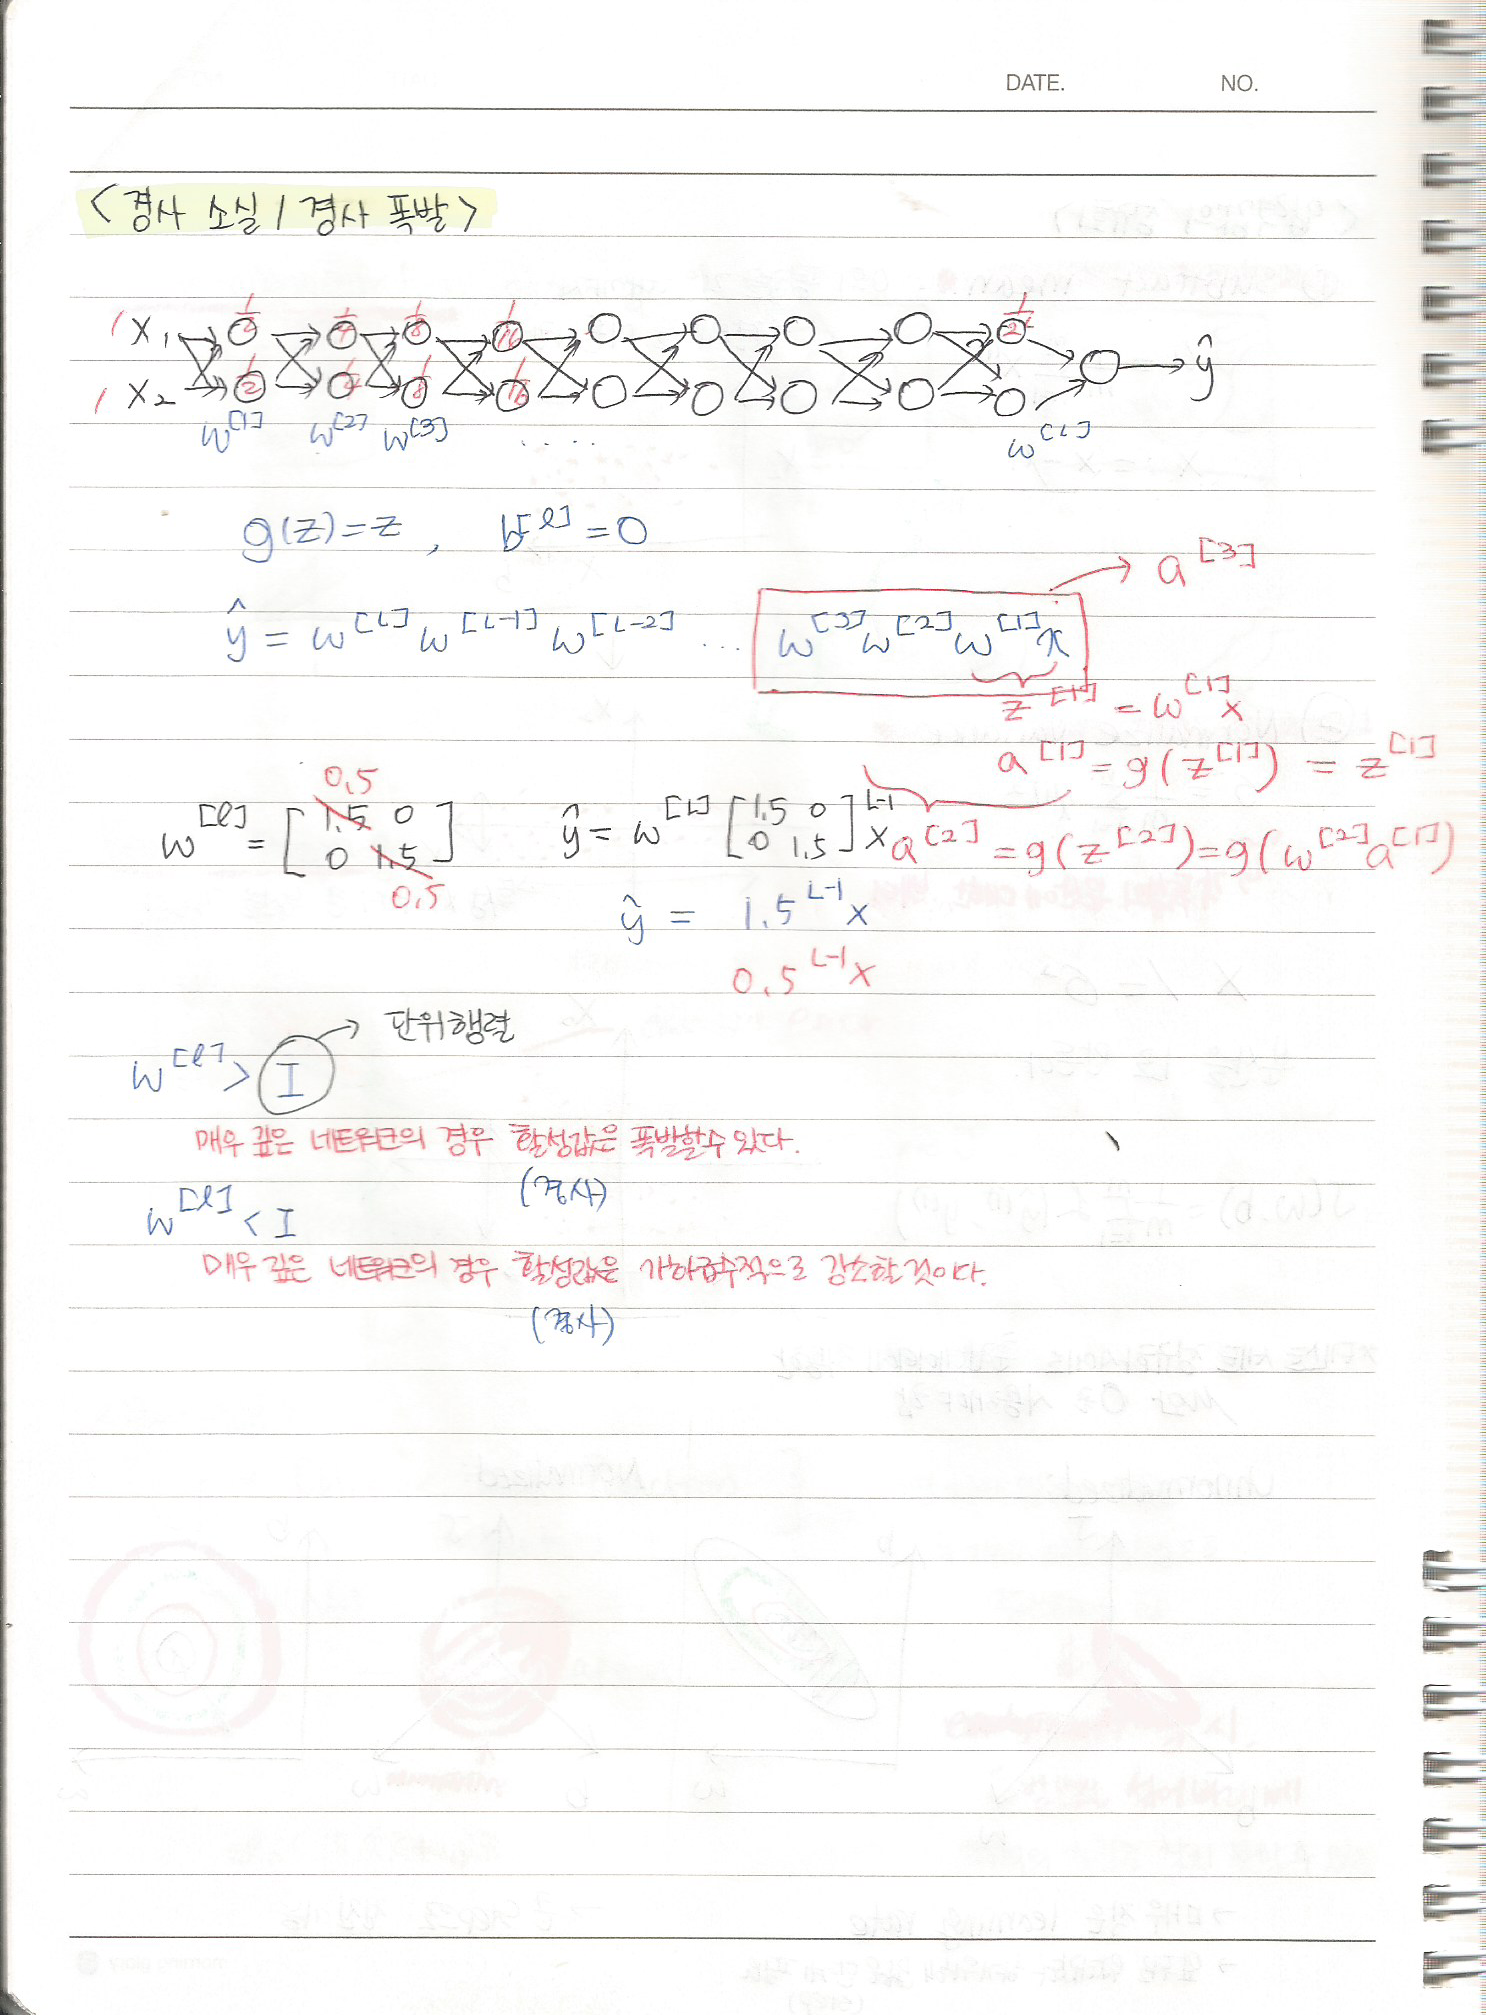 DATE. NO.
<경사 소실 / 경사 폭발>
1 x₁ 1/2 1/4 1/8 1/16 1/2^L ŷ
1 x₂ 1/2 1/4 1/8 1/16
w^[1] w^[2] w^[3] ..... w^[L]
g(z)=z, b^[l]=0
→ a^[3]
ŷ = w^[L] w^[L-1] w^[L-2] ... w^[3] w^[2] w^[1] x
z^[1] = w^[1] x
a^[1] = g(z^[1]) = z^[1]
0.5
w^[l] = [1.5 0
0 1.5]
0.5
ŷ = w^[L] [1.5 0
0 1.5]^L-1 x
a^[2] = g(z^[2]) = g(w^[2] a^[1])
ŷ = 1.5^L-1 x
0.5^L-1 x
w^[l] > I → 단위행렬
매우 깊은 네트워크의 경우 활성값은 폭발할수 있다.
(경사)
w^[l] < I
매우 깊은 네트워크의 경우 활성값은 기하급수적으로 감소할 것이다.
(경사)